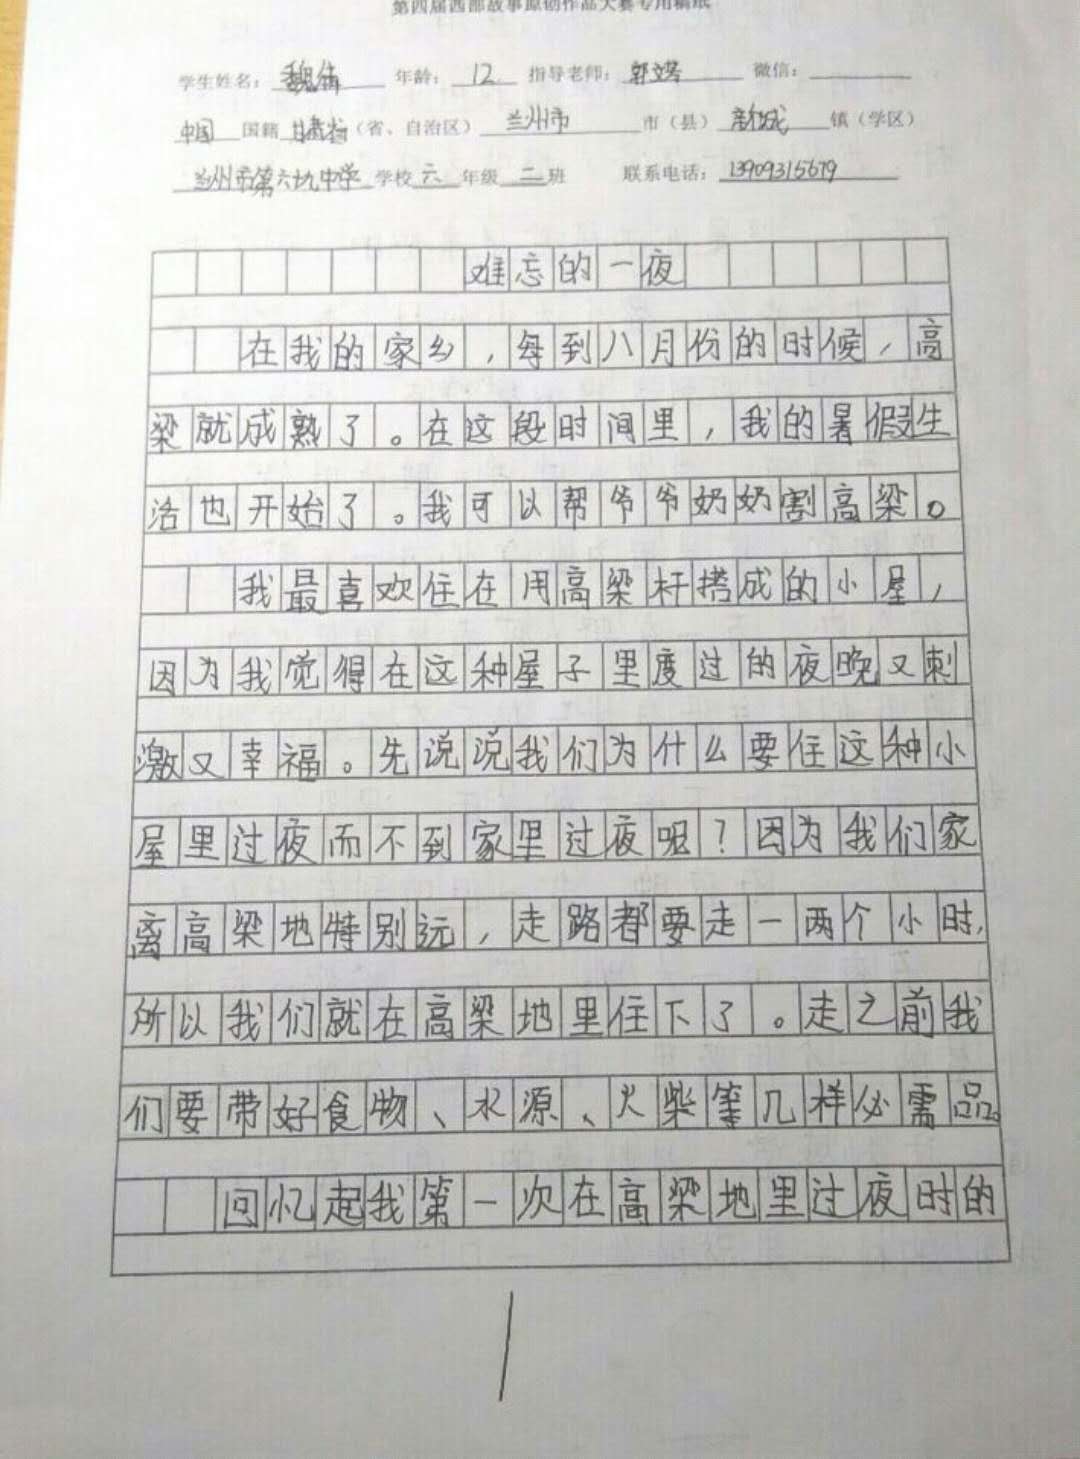 第四届西部故事原创作品大赛专用稿纸
学生姓名：魏倩 年龄：12 指导老师： 微信：
中国 国籍 甘肃省（省、自治区） 兰州市 市（县） 新城 镇（学区）
兰州市第六十九中学 学校 六 年级 二 班 联系电话：13909315679
难忘的一夜
在我的家乡，每到八月份的时候，高
粱就成熟了。在这段时间里，我的暑假生
活也开始了。我可以帮爷爷奶奶割高粱。
我最喜欢住在用高粱杆搭成的小屋，
因为我觉得在这种屋子里度过的夜晚又刺
激又幸福。先说说我们为什么要住这种小
屋里过夜而不到家里过夜呢？因为我们家
离高粱地特别远，走路都要走一两个小时，
所以我们就在高粱地里住下了。走之前我
们要带好食物、水源、火柴等几样必需品。
回忆起我第一次在高粱地里过夜时的
1